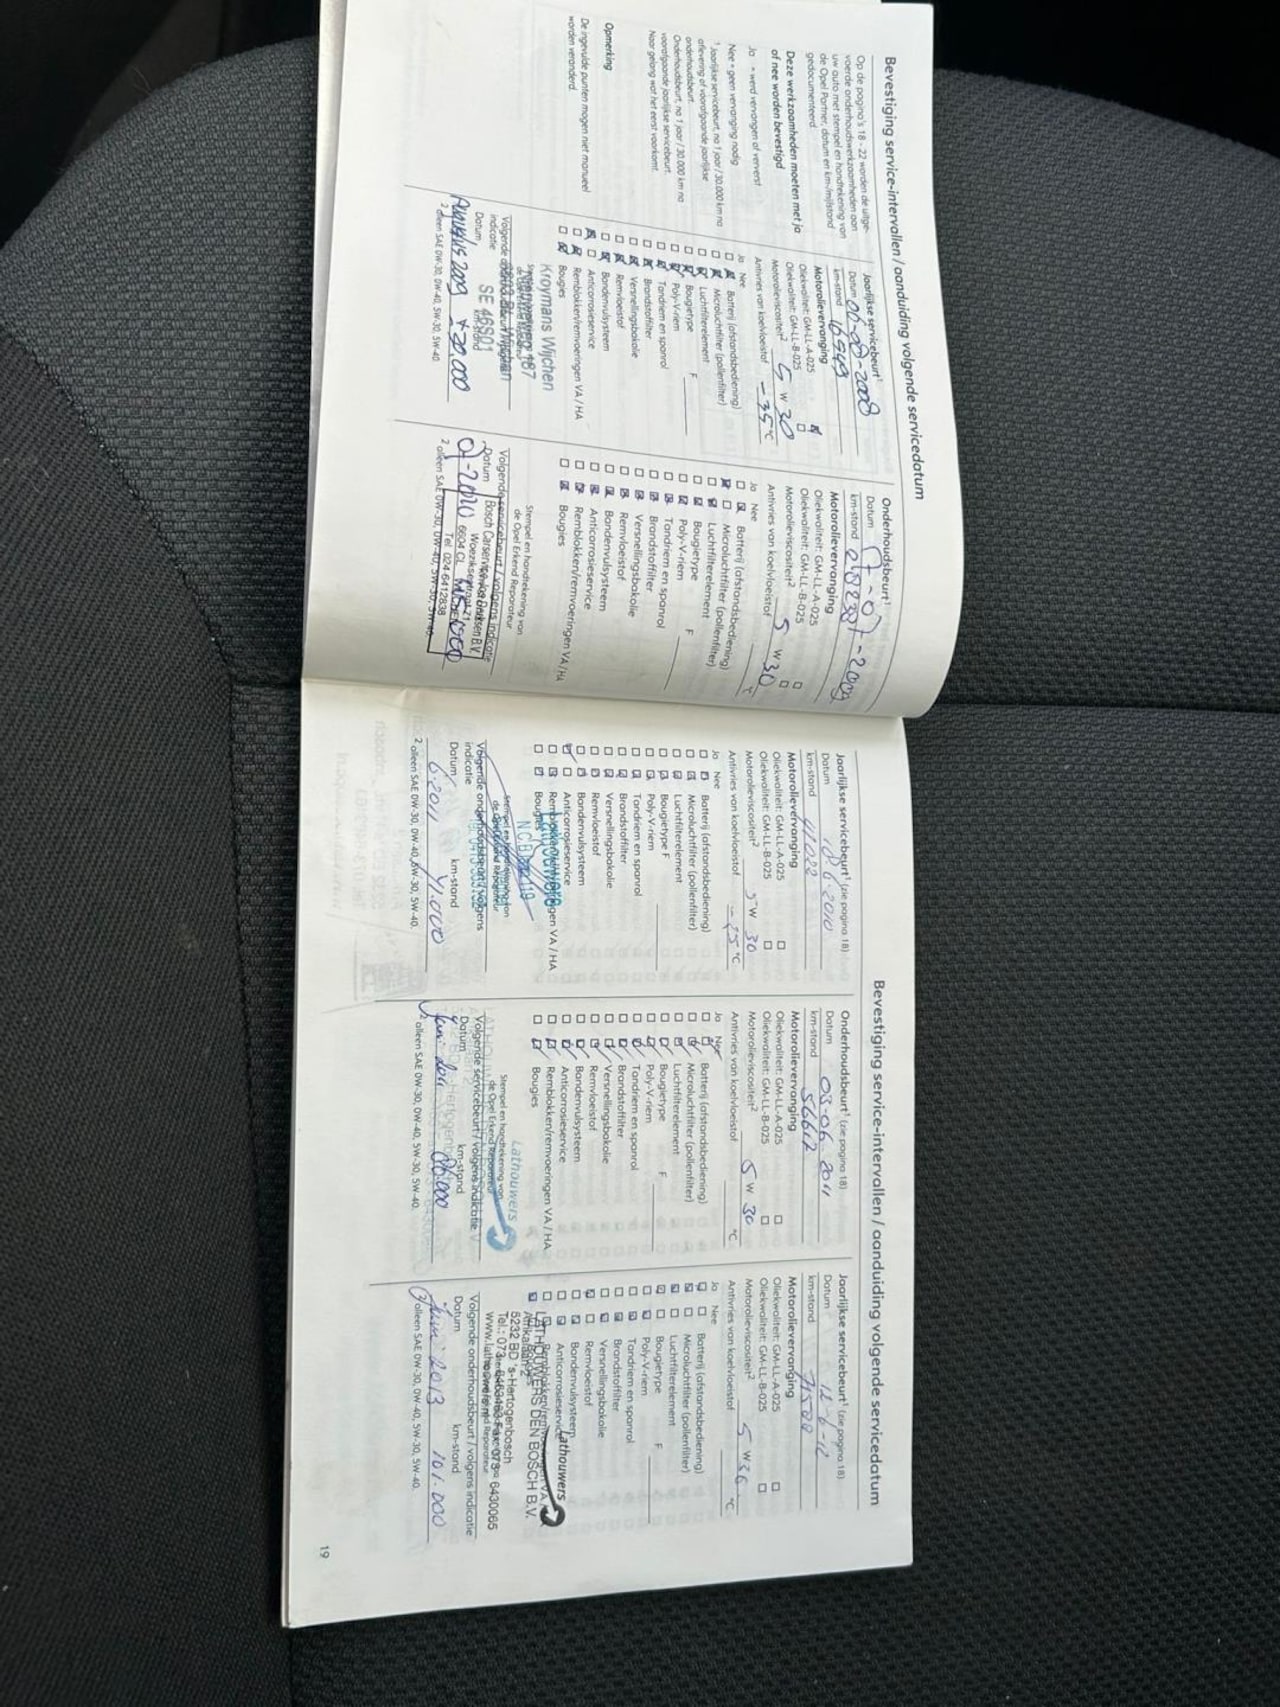 Bevestiging service-intervallen / aanduiding volgende servicedatum
Op de pagina's 18 - 22 worden de uitge-
voerde onderhoudswerkzaamheden aan
uw auto met stempel en handtekening van
de Opel Partner, datum en km-/mijlstand
gedocumenteerd.
Deze werkzaamheden moeten met ja
of nee worden bevestigd
Ja = werd vervangen of ververst
Nee = geen vervanging nodig
¹ Jaarlijkse servicebeurt, na 1 jaar / 30.000 km na
aflevering of voorafgaande jaarlijkse
onderhoudsbeurt.
Onderhoudsbeurt, na 1 jaar / 30.000 km na
voorafgaande jaarlijkse servicebeurt.
Naar gelang wat het eerst voorkomt.
Opmerking
De ingevulde punten mogen niet manueel
worden veranderd.
Jaarlijkse servicebeurt¹
Datum 2008
km-stand 16949
Motorolievervanging
Oliekwaliteit: GM-LL-A-025
Oliekwaliteit: GM-LL-B-025
Motorolieviscositeit² 5 W 30
Antivries van koelvloeistof -35 °C
Ja Nee
Batterij (afstandsbediening)
Microluchtfilter (pollenfilter)
Luchtfilterelement
Bougietype F
Poly-V-riem
Tandriem en spanrol
Brandstoffilter
Versnellingsbakolie
Remvloeistof
Bandenvulsysteem
Anticorrosieservice
Remblokken/remvoeringen VA / HA
Bougies
Kroymans Wijchen
187
Wijchen
SE 46S01
Datum km-stand
Augustus 2009
² alleen SAE 0W-30, 0W-40, 5W-30, 5W-40.
Onderhoudsbeurt¹
Datum 17-07-2009
km-stand
Motorolievervanging
Oliekwaliteit: GM-LL-A-025
Oliekwaliteit: GM-LL-B-025
Motorolieviscositeit² 5 W 30
Antivries van koelvloeistof °C
Ja Nee
Batterij (afstandsbediening)
Microluchtfilter (pollenfilter)
Luchtfilterelement
Bougietype F
Poly-V-riem
Tandriem en spanrol
Brandstoffilter
Versnellingsbakolie
Remvloeistof
Bandenvulsysteem
Anticorrosieservice
Remblokken/remvoeringen VA / HA
Bougies
Stempel en handtekening van
de Opel Erkend Reparateur
Volgende servicebeurt / volgens indicatie
Datum
Bosch Carservice
07-2010
6604 CL
Tel. 024-6412838
² alleen SAE 0W-30, 0W-40, 5W-30, 5W-40.
Bevestiging service-intervallen / aanduiding volgende servicedatum
Jaarlijkse servicebeurt¹ (zie pagina 18)
Datum 2010
km-stand 41022
Motorolievervanging
Oliekwaliteit: GM-LL-A-025
Oliekwaliteit: GM-LL-B-025
Motorolieviscositeit² 5 W 30
Antivries van koelvloeistof °C
Ja Nee
Batterij (afstandsbediening)
Microluchtfilter (pollenfilter)
Luchtfilterelement
Bougietype F
Poly-V-riem
Tandriem en spanrol
Brandstoffilter
Versnellingsbakolie
Remvloeistof
Bandenvulsysteem
Anticorrosieservice
Remblokken/remvoeringen VA / HA
Bougies
Lathouwers
Stempel en handtekening van
de Opel Erkend Reparateur
Volgende onderhoudsbeurt / volgens
indicatie
Datum km-stand
6-2011
² alleen SAE 0W-30, 0W-40, 5W-30, 5W-40.
Onderhoudsbeurt¹ (zie pagina 18)
Datum 03-06-2011
km-stand 56612
Motorolievervanging
Oliekwaliteit: GM-LL-A-025
Oliekwaliteit: GM-LL-B-025
Motorolieviscositeit² 5 W 30
Antivries van koelvloeistof °C
Ja Nee
Batterij (afstandsbediening)
Microluchtfilter (pollenfilter)
Luchtfilterelement
Bougietype F
Poly-V-riem
Tandriem en spanrol
Brandstoffilter
Versnellingsbakolie
Remvloeistof
Bandenvulsysteem
Anticorrosieservice
Remblokken/remvoeringen VA / HA
Bougies
Lathouwers
Stempel en handtekening van
de Opel Erkend Reparateur
Volgende servicebeurt / volgens indicatie
Datum km-stand
² alleen SAE 0W-30, 0W-40, 5W-30, 5W-40.
Jaarlijkse servicebeurt¹ (zie pagina 18)
Datum 12-6-12
km-stand
Motorolievervanging
Oliekwaliteit: GM-LL-A-025
Oliekwaliteit: GM-LL-B-025
Motorolieviscositeit² 5 W 30
Antivries van koelvloeistof °C
Ja Nee
Batterij (afstandsbediening)
Microluchtfilter (pollenfilter)
Luchtfilterelement
Bougietype F
Poly-V-riem
Tandriem en spanrol
Brandstoffilter
Versnellingsbakolie
Remvloeistof
Bandenvulsysteem
Anticorrosieservice
Lathouwers
LATHOUWERS DEN BOSCH B.V.
5232 BD 's-Hertogenbosch
Volgende onderhoudsbeurt / volgens indicatie
Datum km-stand
Juni 2013 101.000
² alleen SAE 0W-30, 0W-40, 5W-30, 5W-40.
19